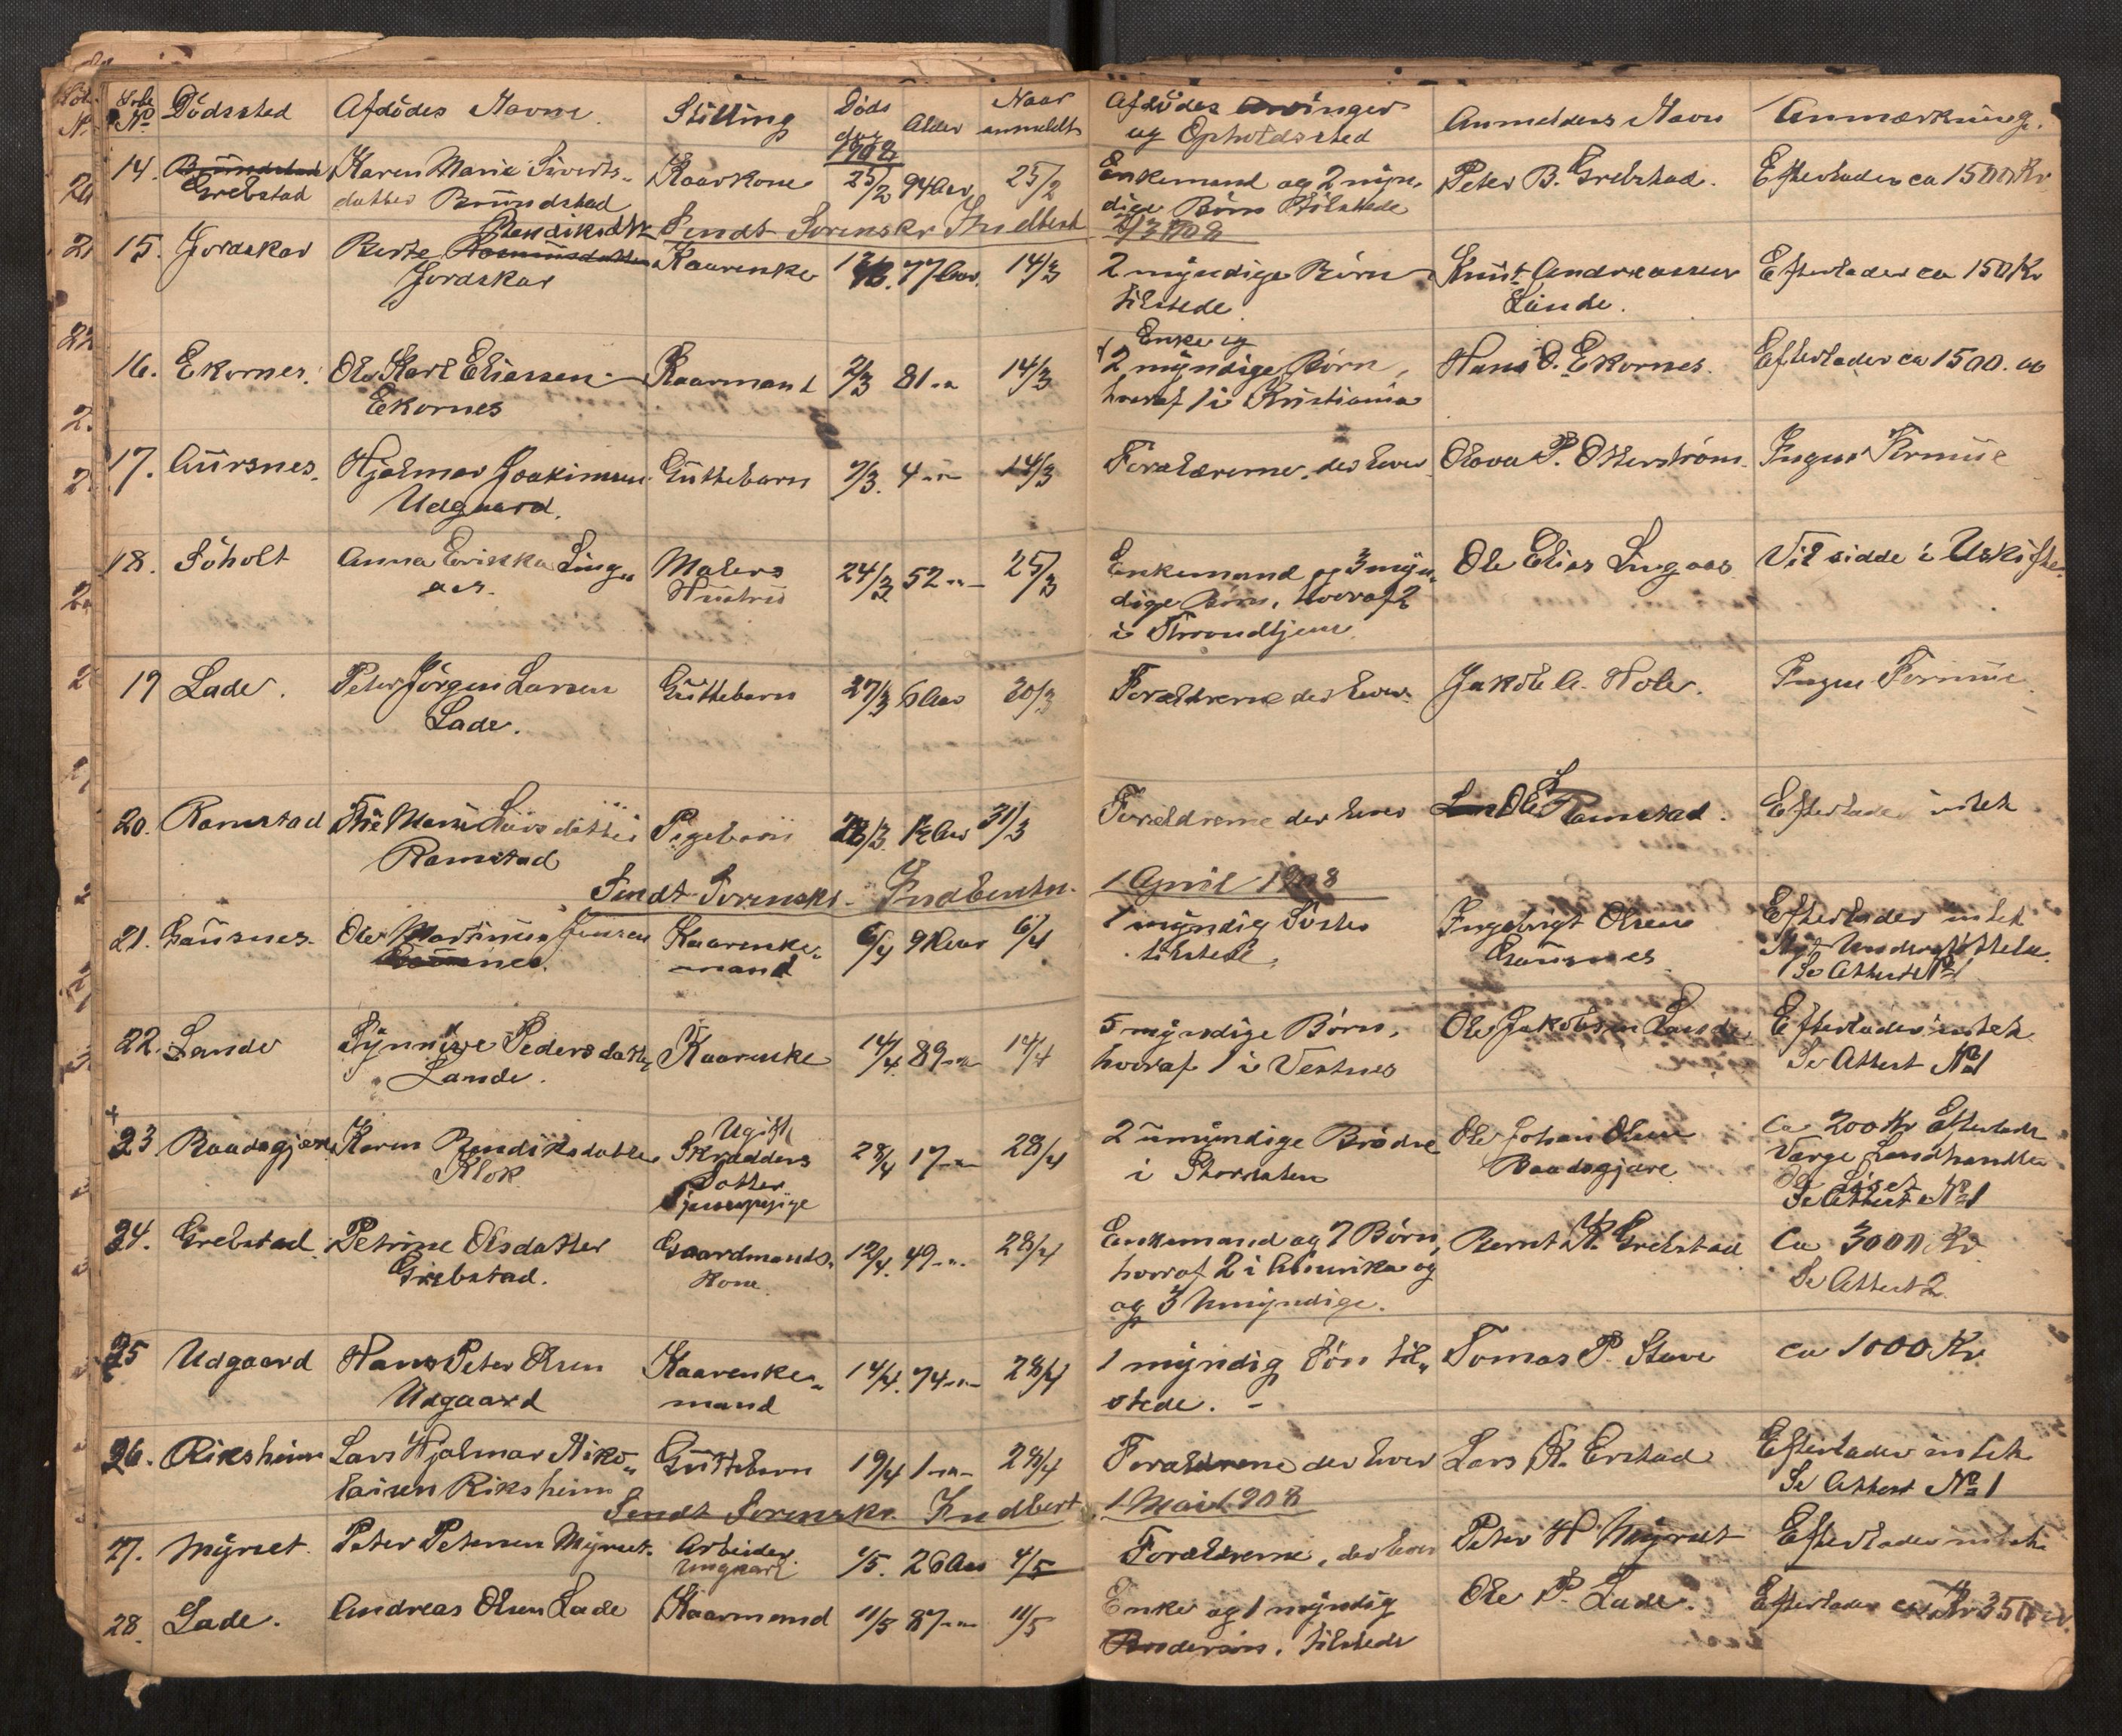 Løbe Nº Dödssted Afdödes Navn. Stilling Döds dag 1908 Alder Naar anmeldt Afdödes Arvinger og Opholdssted Anmelders Navn Anmærkning.
14. Grebstad Karen Marie Siverts- Kaarkone 25/2 94 Aar 25/2 Enkemand og 2 myn- Peter B. Grebstad. Efterlader ca 1500 Kr
datter Brundstad dige Börn tilstede
Sendt Sorenskr Indbert 2/3 1908
15. Jordskar Berte Bendiksdtr Kaarenke 77 Aar. 14/3 2 myndige Börn Knut Andreassen Efterlader ca 150 Kr
Jordskar tilstede Lande.
Enke og
16. Ekornes. Ole Karl Eliassen Kaarmand 2/3 81 " 14/3 2 myndige Börn, Hans O. Ekornes. Efterlader ca 1500. 00
Ekornes hvoraf 1 i Kristiania
17. Aursnes. Hjalmar Joakimsen Guttebarn 7/3. 4 " 14/3 Forældrerne, der lever Olova P. Otterström. Ingen Formue
Udgaard.
18. Söholt Anna Erikka Ling- Malers 24/3 52 " 25/3 Enkemand og 3 myn- Ole Elias Lingaas Vil sidde i Uskifte.
aas. Hustru dige Börn, hvoraf 2
i Throndhjem
19 Lade. Peter Jörgen Larsen Guttebarn 27/3 6 Aar 30/3 Forældrerne der lever. Jakob A. Hole. Ingen Formue
Lade.
20. Ramstad Marie Larsdatter Pigebarn 31/3 Forældrerne der lever Ole Ramstad. Efterlader intet
Ramstad
Sendt Sorenskr. Indbertn. 1 April 1908
21. Gausnes. Ole Martinus Jensen Kaarenke- 6/4 6/4 1 myndig Söster Ingebrigt Olsen Efterlader intet
mand tilstede. Gausnes Nyt Understöttelse.
Se Attest Nº 1
22. Lande Synnöve Pedersdatter Kaarenke 14/4 89 " 14/4 5 myndige Börn, Ole Jakobsen Lande Efterlader intet
Lande. hvoraf 1 i Vestnes Se Attest Nº 1
23 Baadsgjære Karen Bendiksdatter Ugift 28/4 17 " 28/4 2 umyndige Brödre Ole Johan Olsen Ca 200 Kr Efterlader
Klok Skrædders i Stordalen Baadsgjære Værge Landhandler
Datter
Tjenestepige Se Attest Nº 1
24. Grebstad Petrine Olsdatter Gaardmands- 12/4. 49 " 28/4 Enkemand og 7 Börn, Bernt K. Grebstad Ca 3000 Kr
Grebstad. Kone. hvoraf 2 i Amerika og Se Attest 2
og 3 Umyndige.
25 Udgaard Hans Peter Olsen Kaarenke- 14/4. 74 " 28/4 1 myndig Sön til- Tomas P. Stave ca 1000 Kr
Udgaard mand stede. -
26. Riksheim Lars Hjalmar Niko- Guttebarn 19/4 1 " 28/4 Forældrerne der lever Lars K. Erstad Efterlader intet
laisen Riksheim Se Attest Nº 1
Sendt Sorenskr. Indbert 1 Mai 1908
27. Myrset. Peter Petersen Myrset. Arbeider 1/5. 26 Aar 4/5 Forældrerne, der lever Peter H Myrset Efterlader intet
Ungkarl
28. Lade. Andreas Olsen Lade Kaarmand 11/5 87 " 11/5 Enke og 1 myndig Ole P. Lade. Efterlader ca Kr 350
Brodersön. tilstede